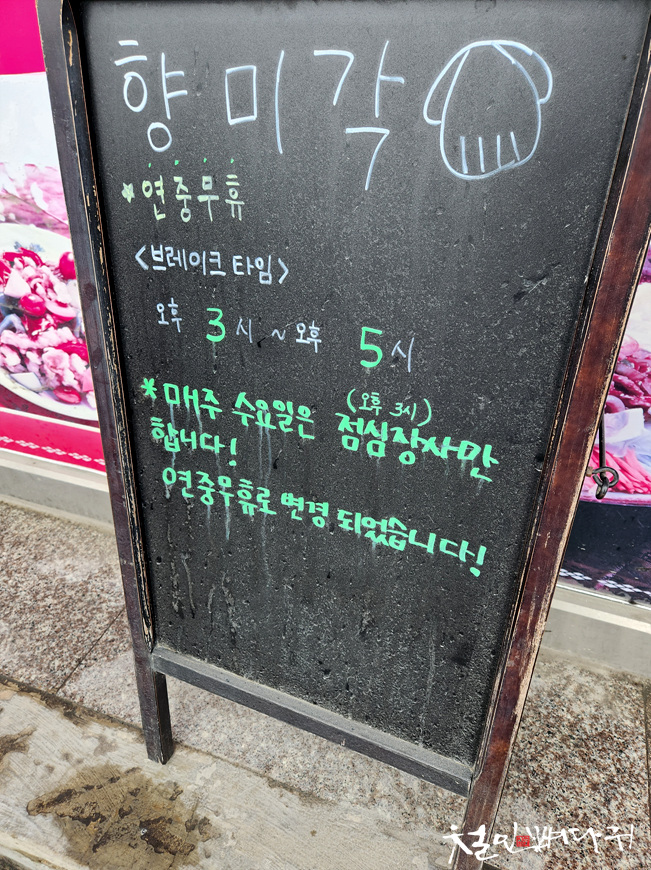 향미각
*연중무휴
<브레이크 타임>
오후 3시 ~ 오후 5시
(오후 3시)
*매주 수요일은 점심장사만
합니다!
연중무휴로 변경 되었습니다!